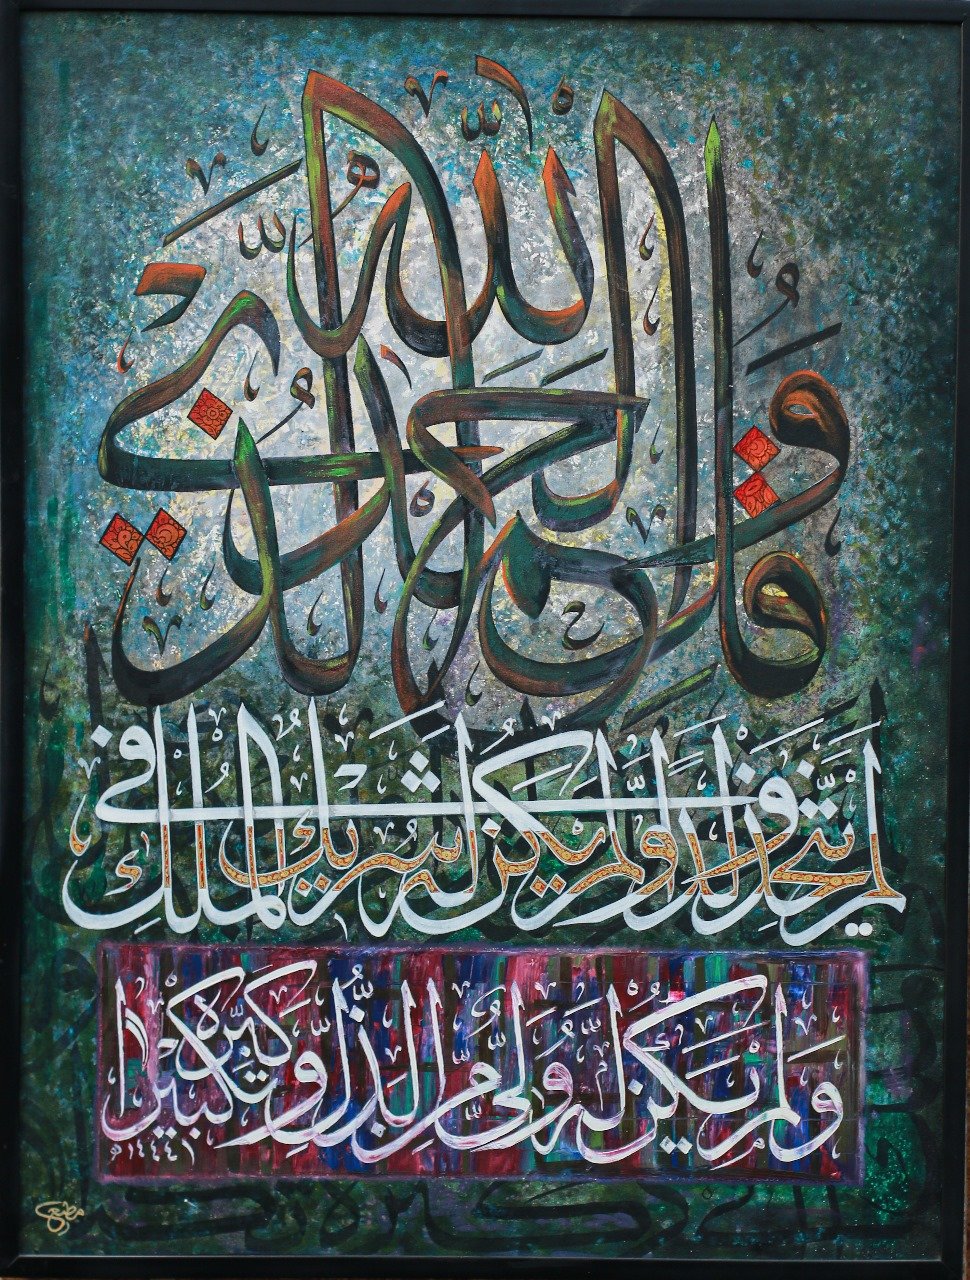 وقل الحمد لله الذي
لم يتخذ ولدا ولم يكن له شريك في الملك
ولم يكن له ولي من الذل وكبره تكبيرا